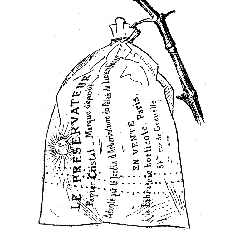 LE PRÉSERVATEUR
Papier Castal - Marque déposée
Adopté par le Jardin d'Acclimatation de Paris
EN VENTE
à la Fabrique horticole, Paris.
rue de Grenelle